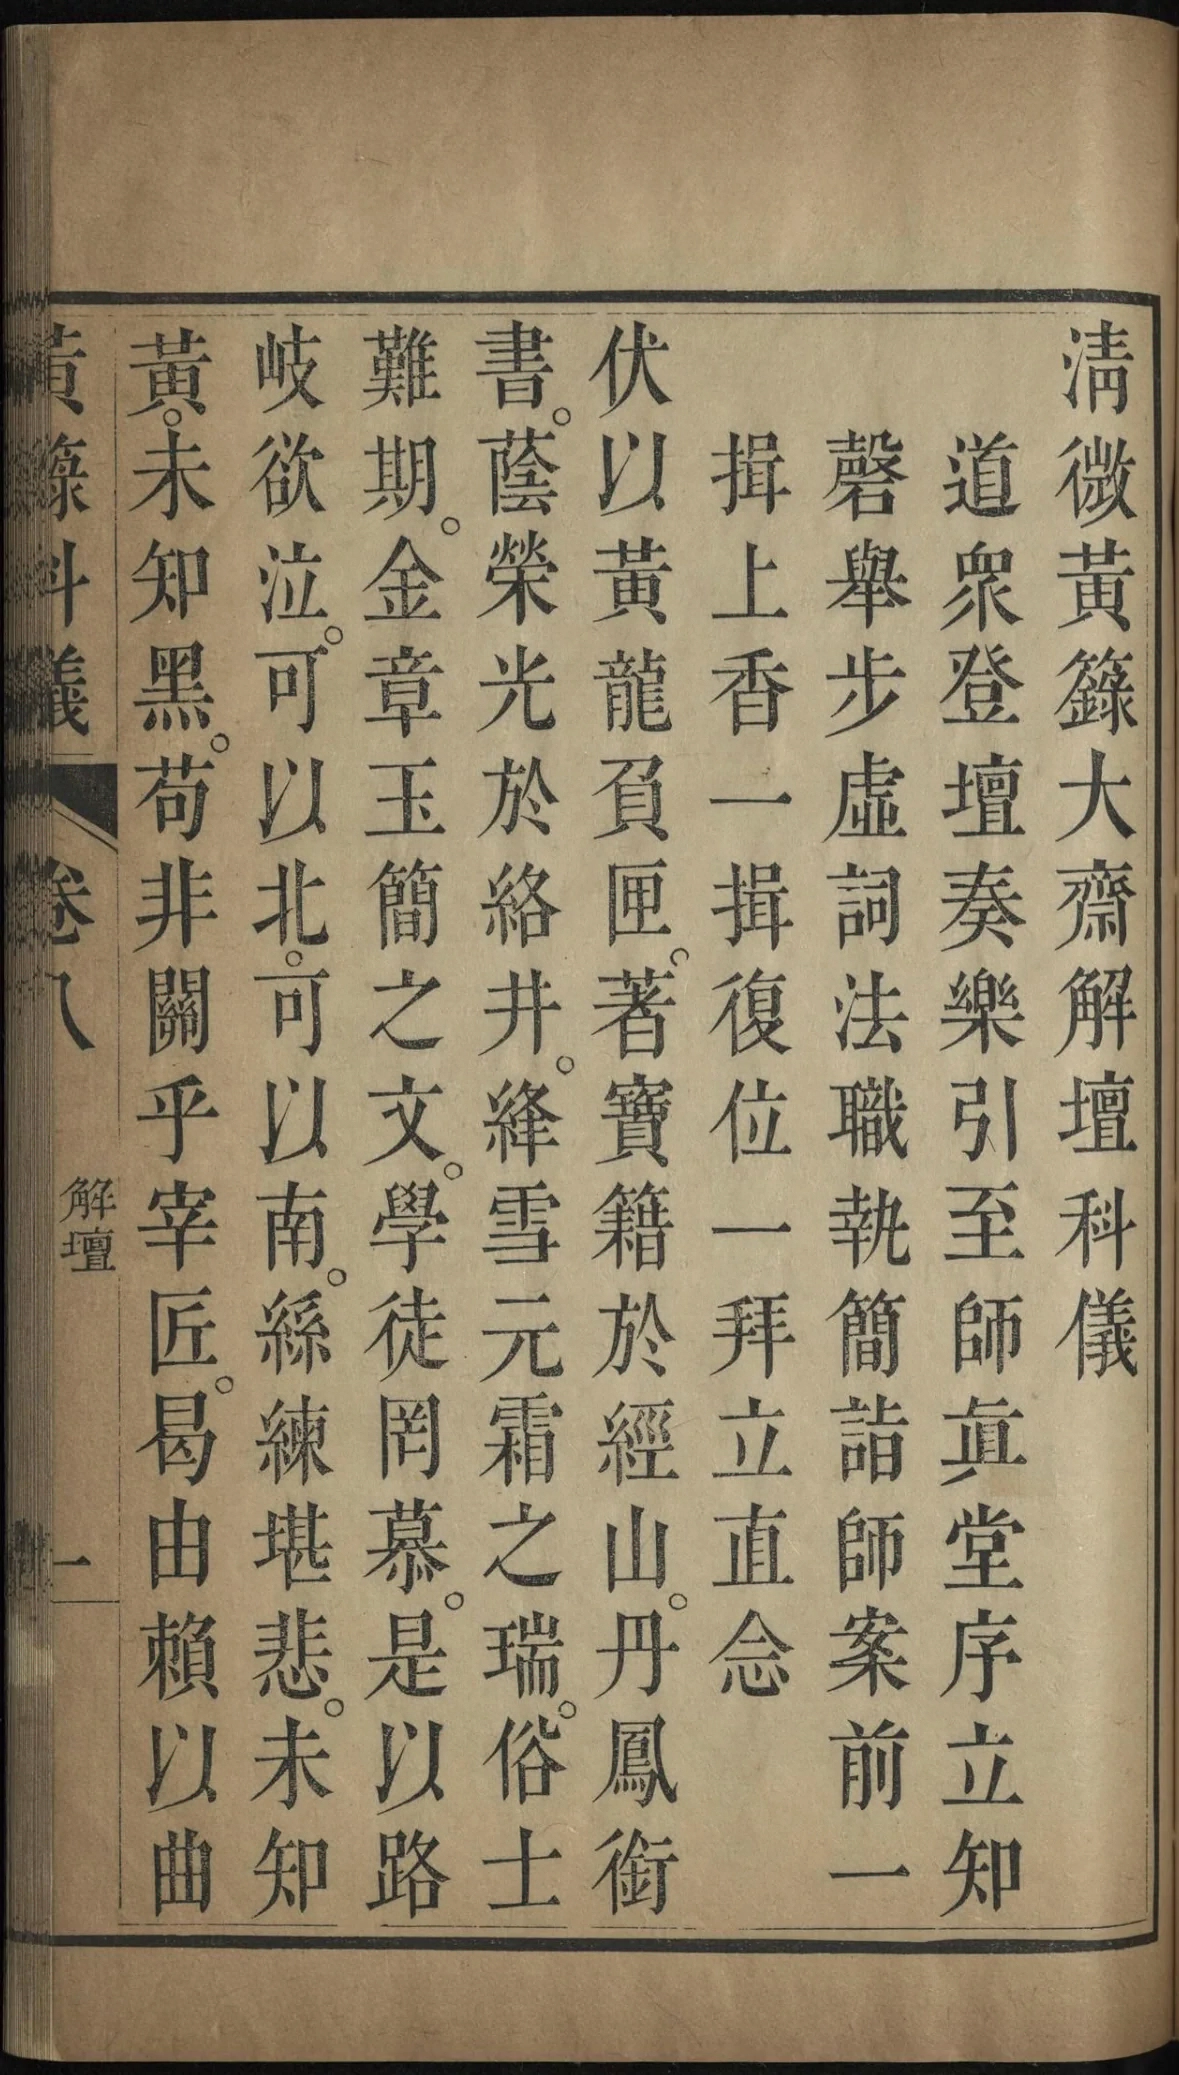 淸微黃籙大齋解壇科儀
道眾登壇奏樂引至師眞堂序立知
磬舉步虛詞法職執簡詣師案前一
揖上香一揖復位一拜立直念
伏以黃龍負匣。著寶籍於經山。丹鳳銜
書。蔭榮光於絡井。絳雪元霜之瑞。俗士
難期。金章玉簡之文。學徒罔慕。是以路
岐欲泣。可以北。可以南。絲練堪悲。未知
黃。未知黑。苟非關乎宰匠。曷由賴以曲
黃籙科儀 卷八 解壇 一